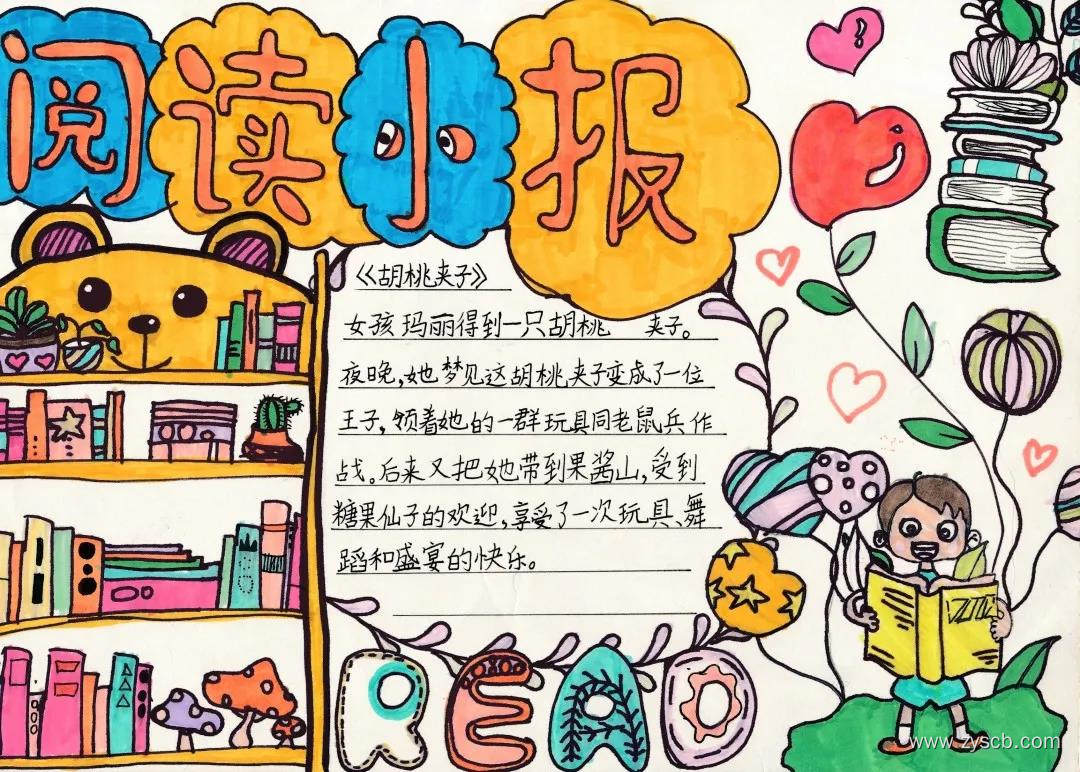 阅读小报
《胡桃夹子》
女孩玛丽得到一只胡桃 夹子。
夜晚,她梦见这胡桃夹子变成了一位
王子,领着她的一群玩具同老鼠兵作
战。后来又把她带到果酱山,受到
糖果仙子的欢迎,享受了一次玩具、舞
蹈和盛宴的快乐。
READ
www.zyscb.com